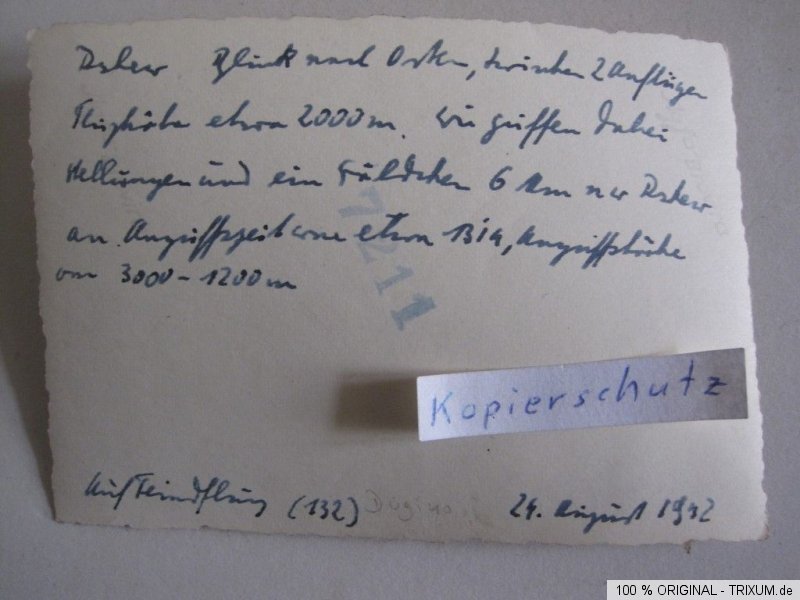 Blick nach Osten, zwischen 2 Anflügen
Flughöhe etwa 2000 m. Wir griffen dabei
Stellungen und ein Wäldchen 6 km nw
an. Angriffszeit war etwa 13 14, Angriffshöhe
von 3000 - 1200 m
7211
Kopierschutz
Auf Feindflug (132) 24. August 1942
100 % ORIGINAL - TRIXUM.de